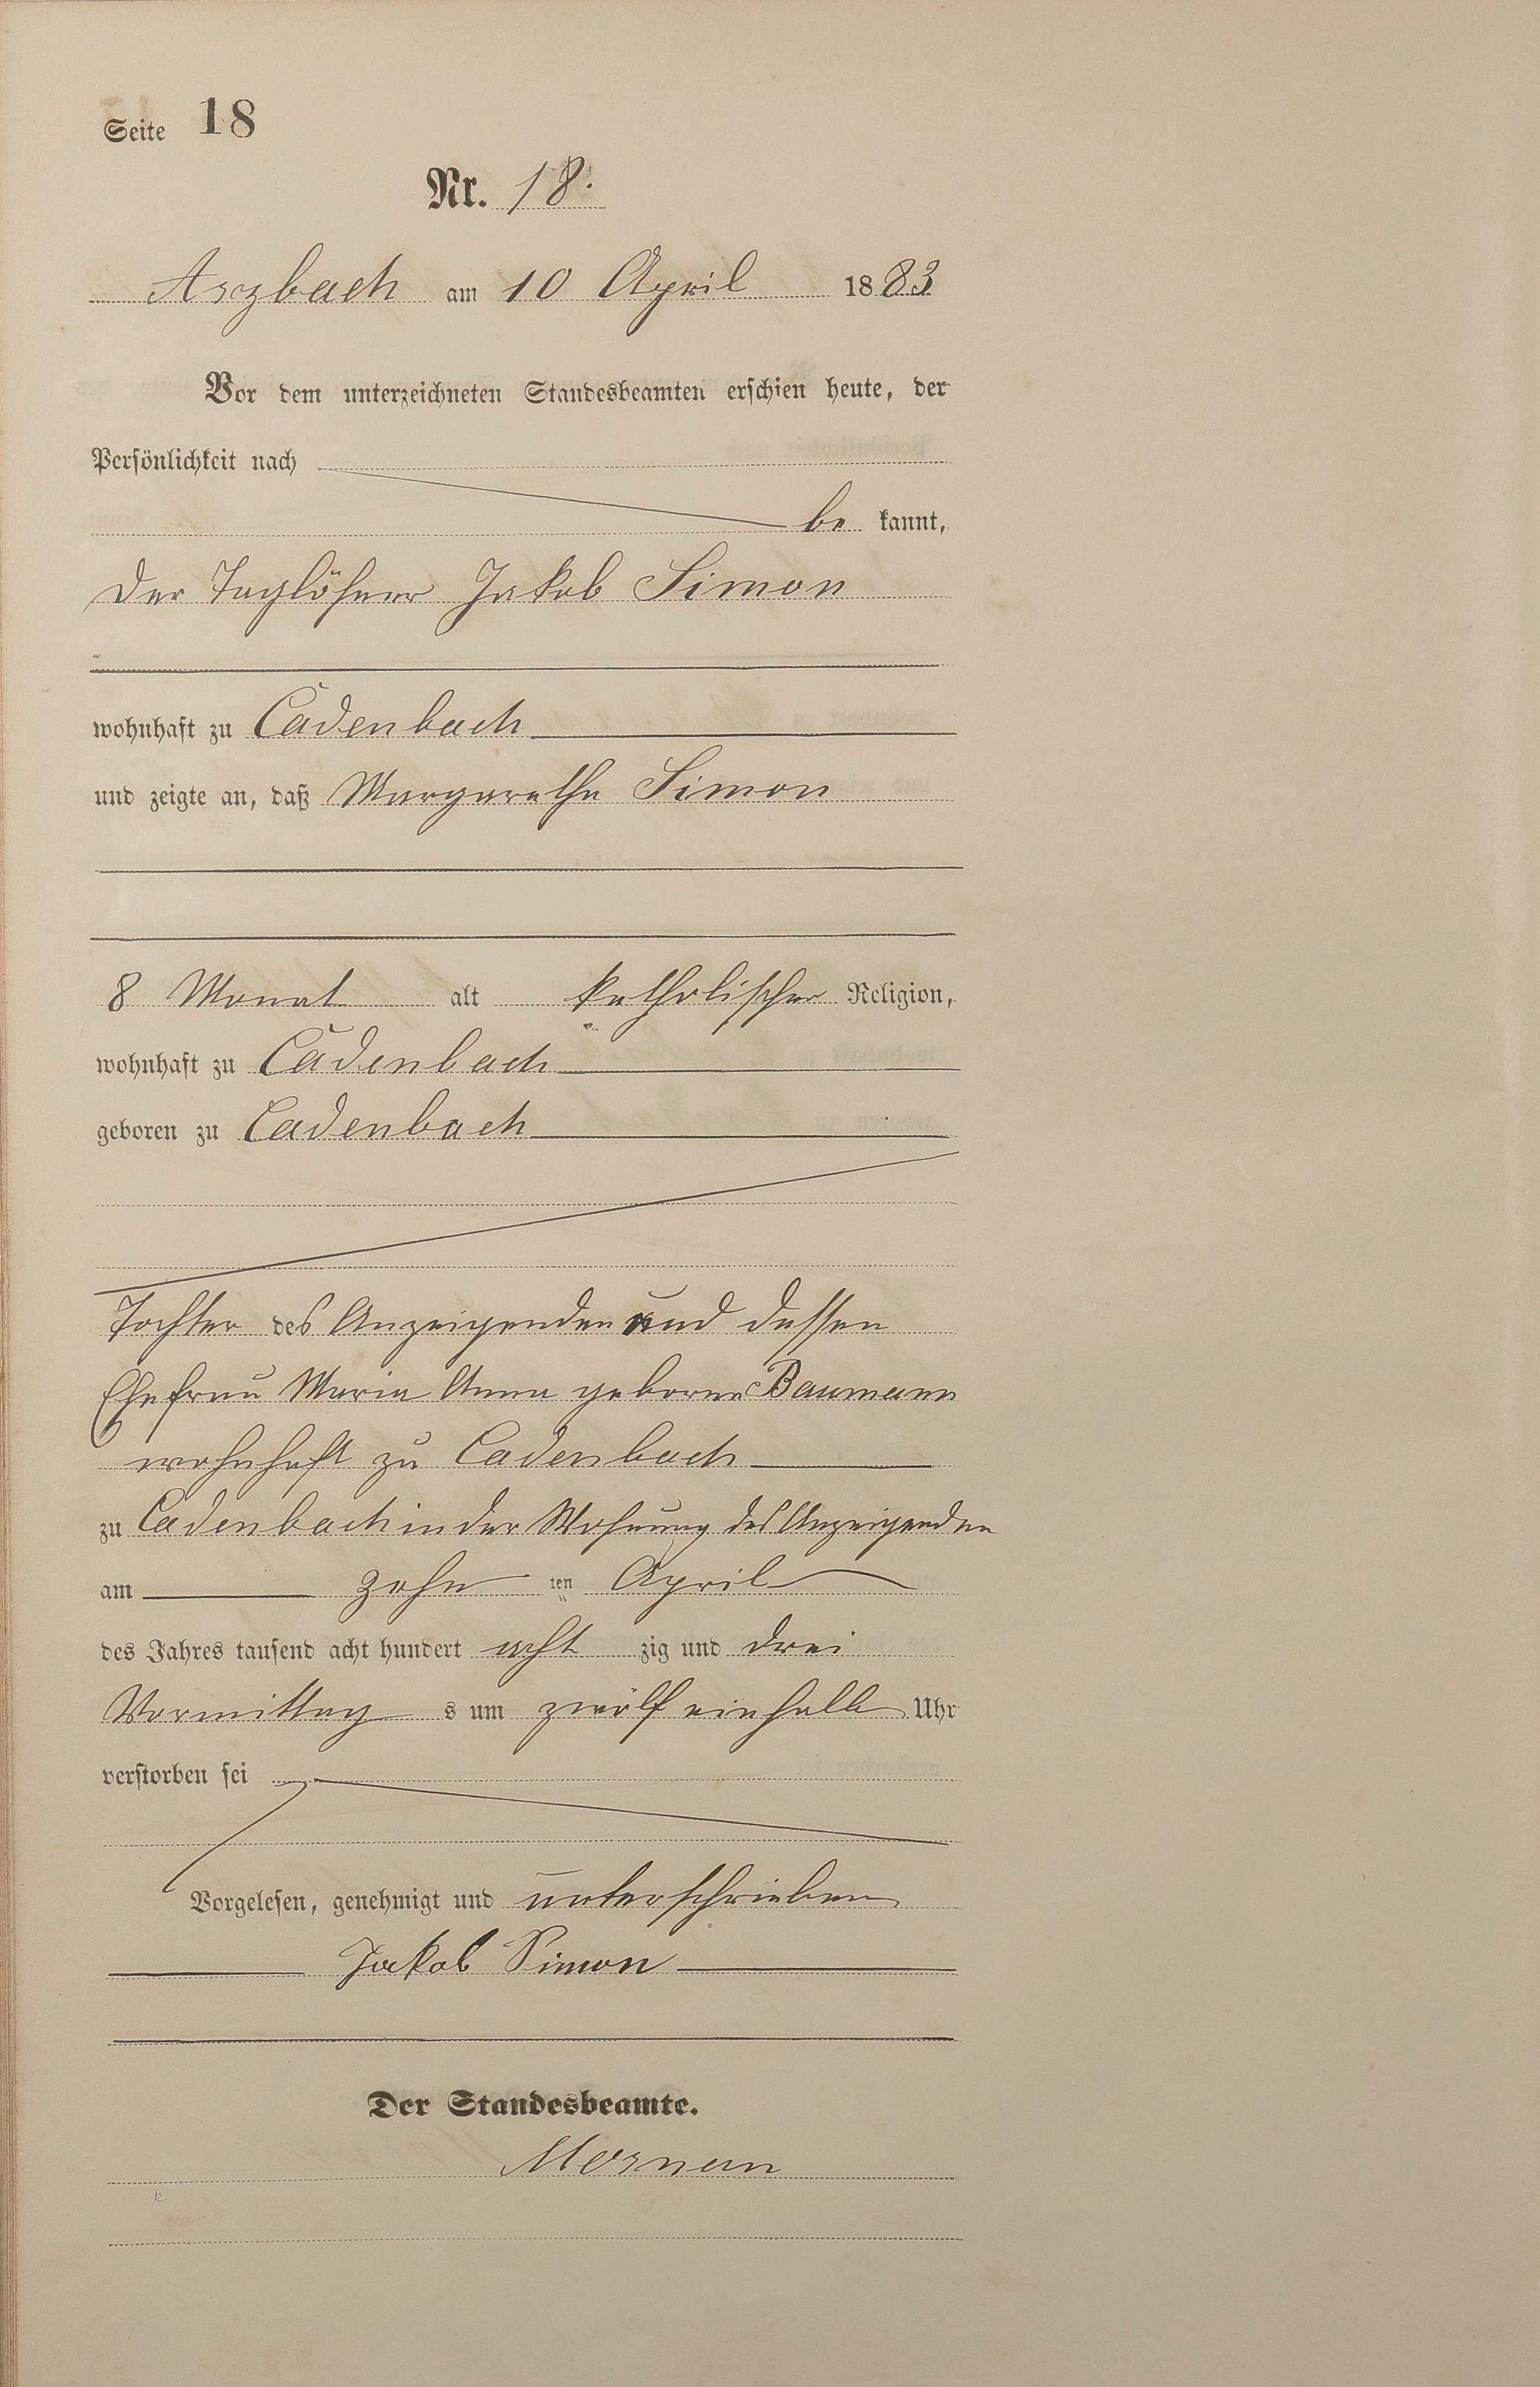 Seite 18
Nr. 18.
Arzbach am 10 April 1883
Vor dem unterzeichneten Standesbeamten erschien heute, der
Persönlichkeit nach
be kannt,
der Taglöhner Jakob Simon
wohnhaft zu Cadenbach
und zeigte an, daß Margarethe Simon
8 Monat alt katholischer Religion,
wohnhaft zu Cadenbach
geboren zu Cadenbach
Tochter des Anzeigenden und dessen
Ehefrau Maria Anna geborne Baumann
wohnhaft zu Cadenbach
zu Cadenbach in der Wohnung des Anzeigenden
am zehn ten April
des Jahres tausend acht hundert acht zig und drei
Vormittag s um zwölf einhalb Uhr
verstorben sei
Vorgelesen, genehmigt und unterschrieben
Jakob Simon
Der Standesbeamte.